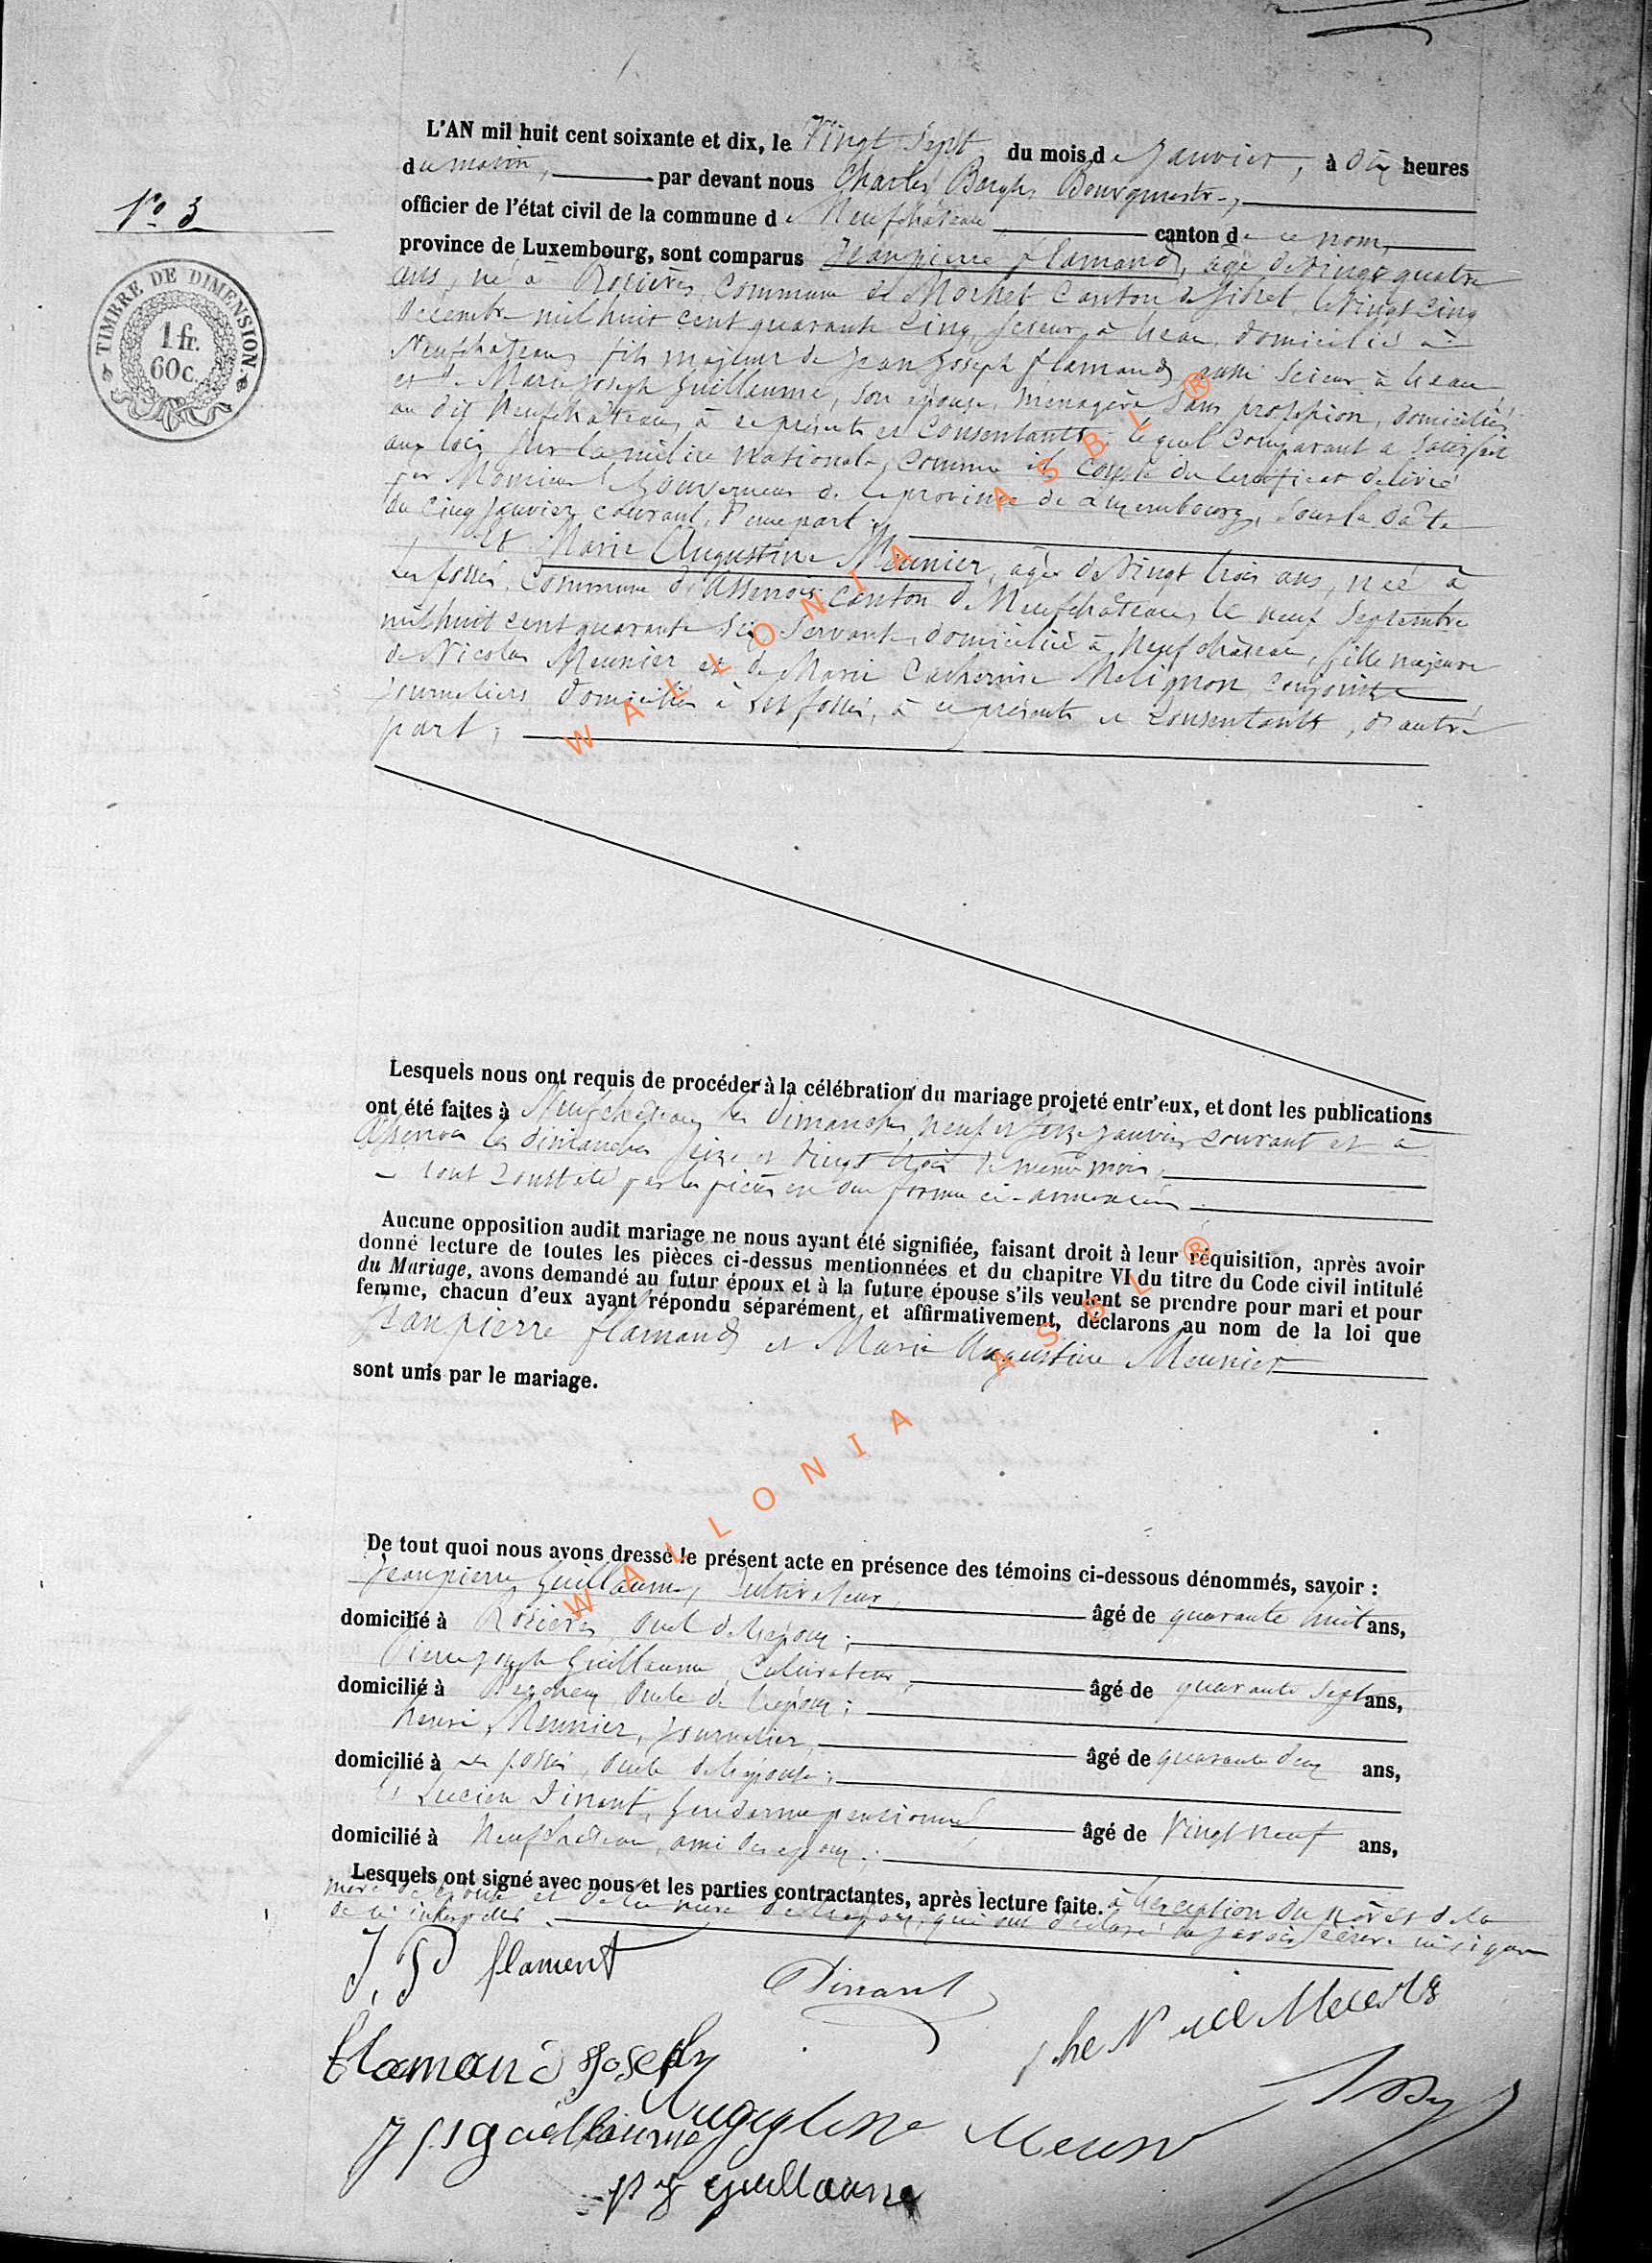 N° 3
TIMBRE DE DIMENSION
1 fr.
60 c.
L'AN mil huit cent soixante et dix, le Vingt Sept du mois de Janvier, à dix heures
du matin, par devant nous Charles Bourgmestre,
officier de l'état civil de la commune de Neufchâteau canton de ce nom,
province de Luxembourg, sont comparus Jeanpierre flamand, agé de vingt quatre
ans, né à Rosières, Commune de Morhet Canton de Sibret, le vingt cinq
Décembre mil huit cent quarante cinq, scieur à déau, domicilié à
Neufchâteau, fils majeur de Jean Joseph flamand aussi scieur
et de Marie Joseph Guillaume, son épouse, ménagère sans profession, domiciliés
au dit Neufchâteau, à ce présents et Consentants; lequel Comparant a satisfait
aux lois sur la milice nationale, comme il conste du certificat délivré
par Monsieur le Gouverneur de la province de Luxembourg, sous la date
du cinq janvier courant, d'une part;
Et Marie Augustine Meunier, agée de vingt trois ans, née à
Les fossés, Commune d'Assenois canton de Neufchâteau, le neuf Septembre
mil huit cent quarante six, servante, domiciliée à Neufchâteau, fille majeure
de Nicolas Meunier et de Marie Catherine Malignon, conjoints
journaliers domiciliés à Les fossés, à ce présents et consentants, d'autre
part;
Lesquels nous ont requis de procéder à la célébration du mariage projeté entr'eux, et dont les publications
ont été faites à Neufchâteau les dimanches neuf et seize janvier courant et à
Assenois les dimanches seize et vingt trois du même mois,
tout constaté par les pièces en due forme ci-annexées.
Aucune opposition audit mariage ne nous ayant été signifiée, faisant droit à leur réquisition, après avoir
donné lecture de toutes les pièces ci-dessus mentionnées et du chapitre VI du titre du Code civil intitulé
du Mariage, avons demandé au futur époux et à la future épouse s'ils veulent se prendre pour mari et pour
femme, chacun d'eux ayant répondu séparément et affirmativement, déclarons au nom de la loi que
Jeanpierre flamand et Marie Augustine Meunier
sont unis par le mariage.
De tout quoi nous avons dressé le présent acte en présence des témoins ci-dessous dénommés, savoir :
Jeanpierre Guillaume, Cultivateur, âgé de quarante huit ans,
domicilié à Rosières, oncle de l'époux;
Pierre Joseph Guillaume, Cultivateur, âgé de quarante sept ans,
domicilié à oncle de l'époux;
henri Meunier, journalier, âgé de quarante deux ans,
domicilié à Les fossés, oncle de l'épouse;
Et Lucien Dinant, Gendarme pensionné âgé de Vingt neuf ans,
domicilié à Neufchâteau, ami des époux.
Lesquels ont signé avec nous et les parties contractantes, après lecture faite. à l'exception du père et de la
mère de l'épouse et de la mère de l'époux, qui ont déclaré ne savoir écrire ni signer
de ce interpellés.
J. P. flament
Dinant
he N Meunier
flamand Joseph
Augustine Meunier
J P Guillaume
p J guillaume
WALLONIA ASBL ®
WALLONIA ASBL ®